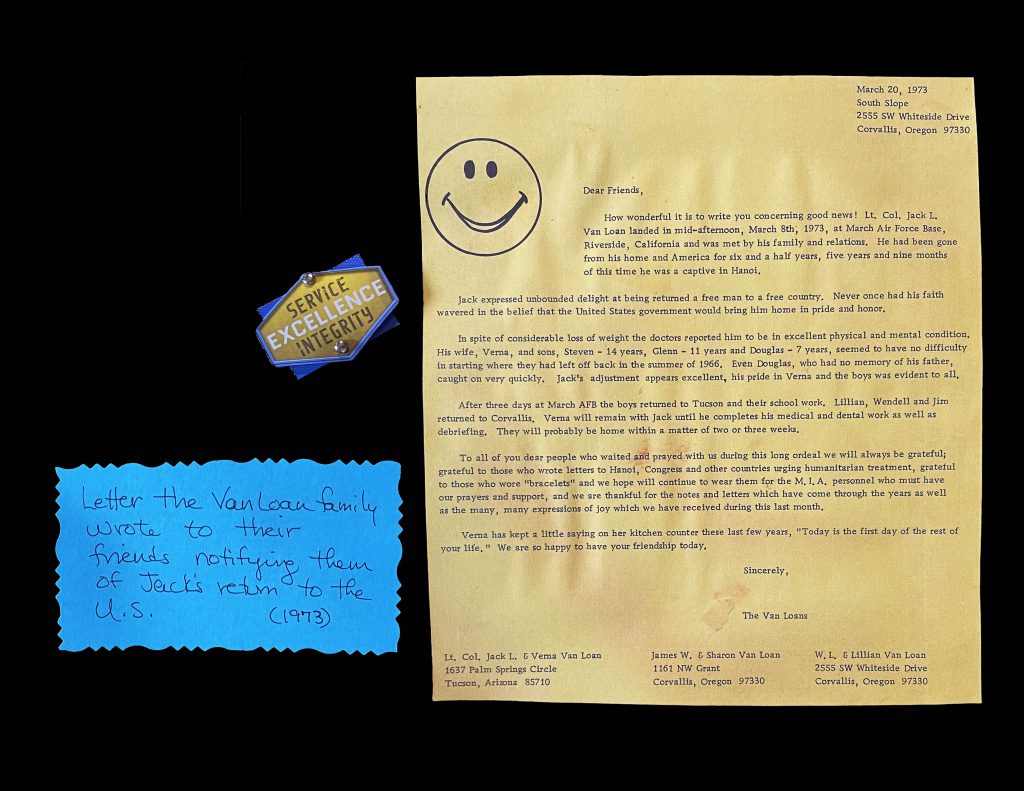 March 20, 1973
South Slope
2555 SW Whiteside Drive
Corvallis, Oregon 97330
Dear Friends,
How wonderful it is to write you concerning good news! Lt. Col. Jack L.
Van Loan landed in mid-afternoon, March 8th, 1973, at March Air Force Base,
Riverside, California and was met by his family and relations. He had been gone
from his home and America for six and a half years, five years and nine months
of this time he was a captive in Hanoi.
Jack expressed unbounded delight at being returned a free man to a free country. Never once had his faith
wavered in the belief that the United States government would bring him home in pride and honor.
In spite of considerable loss of weight the doctors reported him to be in excellent physical and mental condition.
His wife, Verna, and sons, Steven - 14 years, Glenn - 11 years and Douglas - 7 years, seemed to have no difficulty
in starting where they had left off back in the summer of 1966. Even Douglas, who had no memory of his father,
caught on very quickly. Jack's adjustment appears excellent, his pride in Verna and the boys was evident to all.
After three days at March AFB the boys returned to Tucson and their school work. Lillian, Wendell and Jim
returned to Corvallis. Verna will remain with Jack until he completes his medical and dental work as well as
debriefing. They will probably be home within a matter of two or three weeks.
To all of you dear people who waited and prayed with us during this long ordeal we will always be grateful;
grateful to those who wrote letters to Hanoi, Congress and other countries urging humanitarian treatment, grateful
to those who wore "bracelets" and we hope will continue to wear them for the M.I.A. personnel who must have
our prayers and support, and we are thankful for the notes and letters which have come through the years as well
as the many, many expressions of joy which we have received during this last month.
Verna has kept a little saying on her kitchen counter these last few years, "Today is the first day of the rest of
your life." We are so happy to have your friendship today.
Sincerely,
The Van Loans
Lt. Col. Jack L. & Verna Van Loan
1637 Palm Springs Circle
Tucson, Arizona 85710
James W. & Sharon Van Loan
1161 NW Grant
Corvallis, Oregon 97330
W. L. & Lillian Van Loan
2555 SW Whiteside Drive
Corvallis, Oregon 97330
SERVICE
EXCELLENCE
INTEGRITY
Letter the Van Loan family
wrote to their
friends notifying them
of Jack's return to the
U.S. (1973)